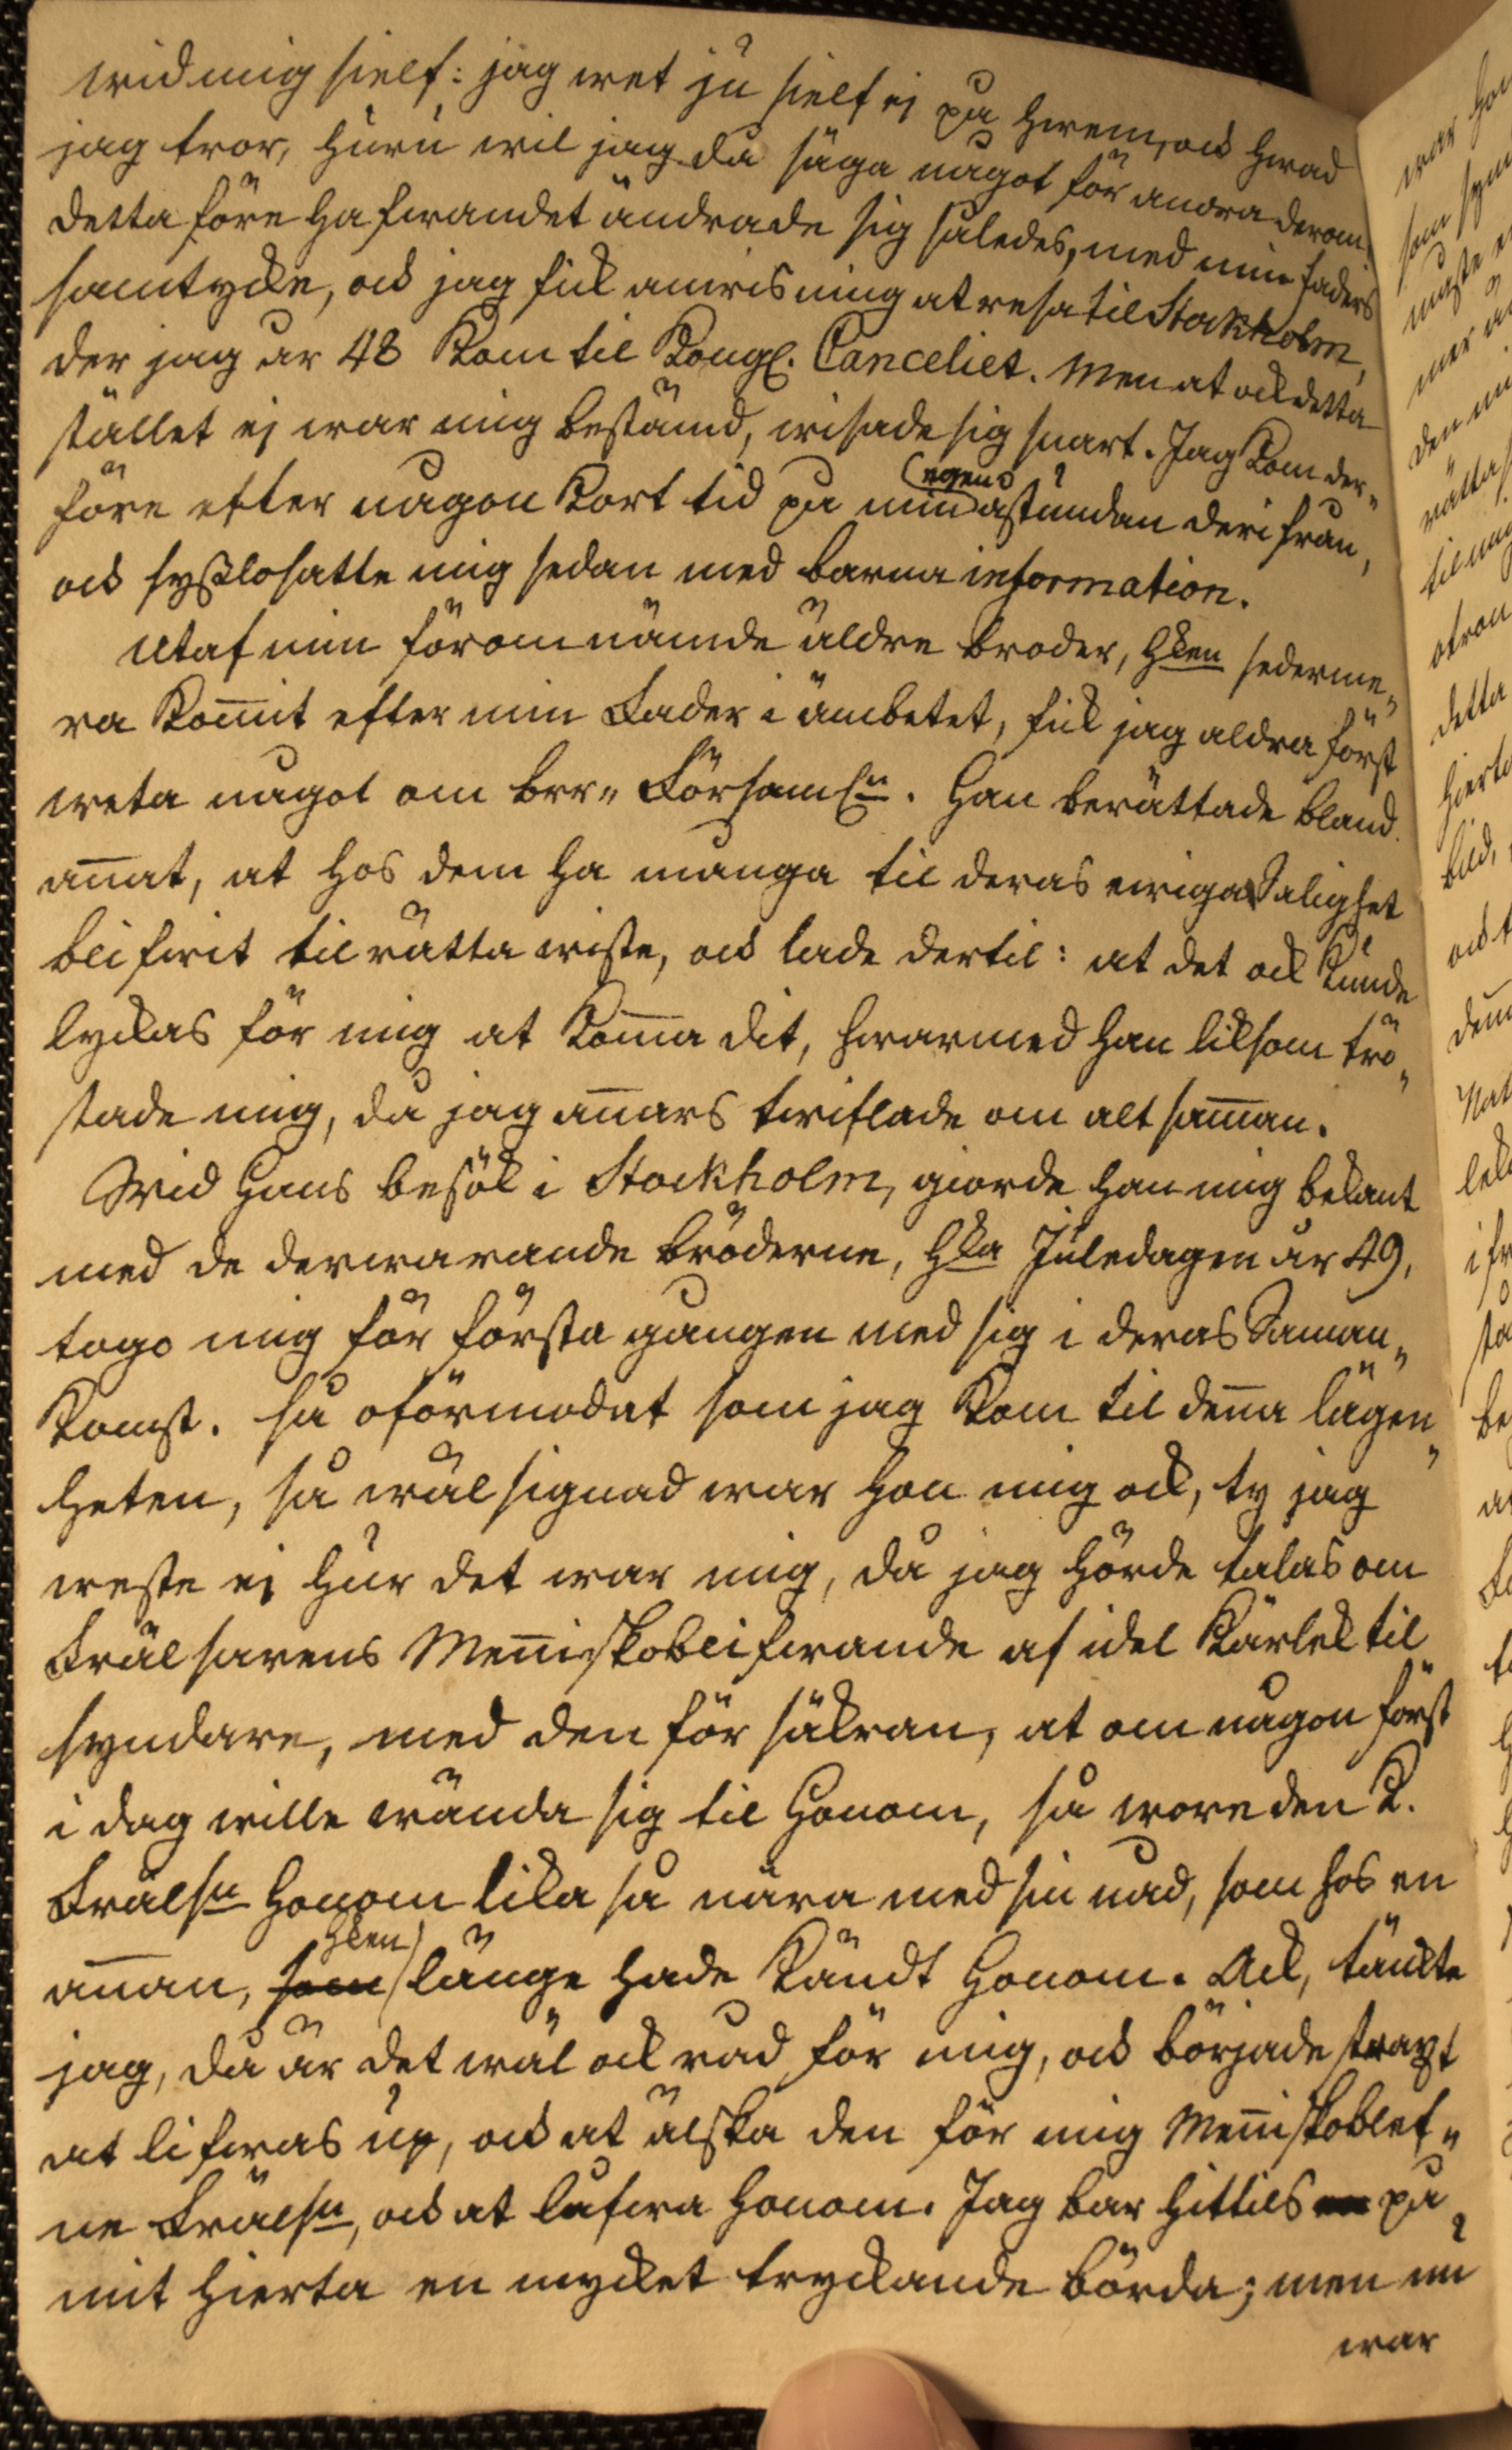 wid mig sielf: jag wet ju sielf ej på hwem, och hwad
jag tror, huru wil jag då säga något för andra derom.
Detta förehafwandet ändrade sig således, med min Faders
samtycke, och jag fick anwisning at resa til Stockholm,
der jag år 48 kom til Kongl. Canceliet. Men at ock detta
stället ej war mig bestämd, wisade sig snart. Jag kom der„
före efter någon kort tid på min egen åstundan derifrån,
och sysslosatte mig sedan med barna information.
Utaf min föromnämde äldre broder, hken sederme„
ra kom̄it efter min Fader i ämbetet, fick jag aldra först
weta något om brr„ Församln. Han berättade bland
an̄at, at hos dem ha många til deras ewiga Salighet
blifwit tilrätta wiste, och lade dertil: at det ock kunde
lyckas för mig at kom̄a dit, hwarmed han liksom trö„
stade mig, då jag an̄ars twiflade om altsam̄an.
Wid Hans besök i Stockholm, giorde han mig bekant
med de derwarande bröderne, hka Juledagen år 49,
togo mig för första gången med sig i deras Saman„
komst. Så oförmodat som jag kom til den̄a lägen„
heten, så wälsignad war hon mig ock, ty jag
weste ej hur det war mig, då jag hörde talas om
Frälsarens Men̄iskoblifwande af idel Kärlek til
syndare, med den försäkran, at om någon först
i dag wille wända sig til Honom, så wore den K.
Frälsn Honom lika så nära med sin nåd, som hos en
an̄an, som hken länge hade kändt Honom. Ack, tänkte
jag, då är det wäl ock råd för mig, och började straxt
at lifwas up, och at älska den för mig Men̄iskoblef„
ne Frälsn, och at lufwa Honom. Jag bar hittils på
mit hierta en mycket tryckande börda; men nu
war